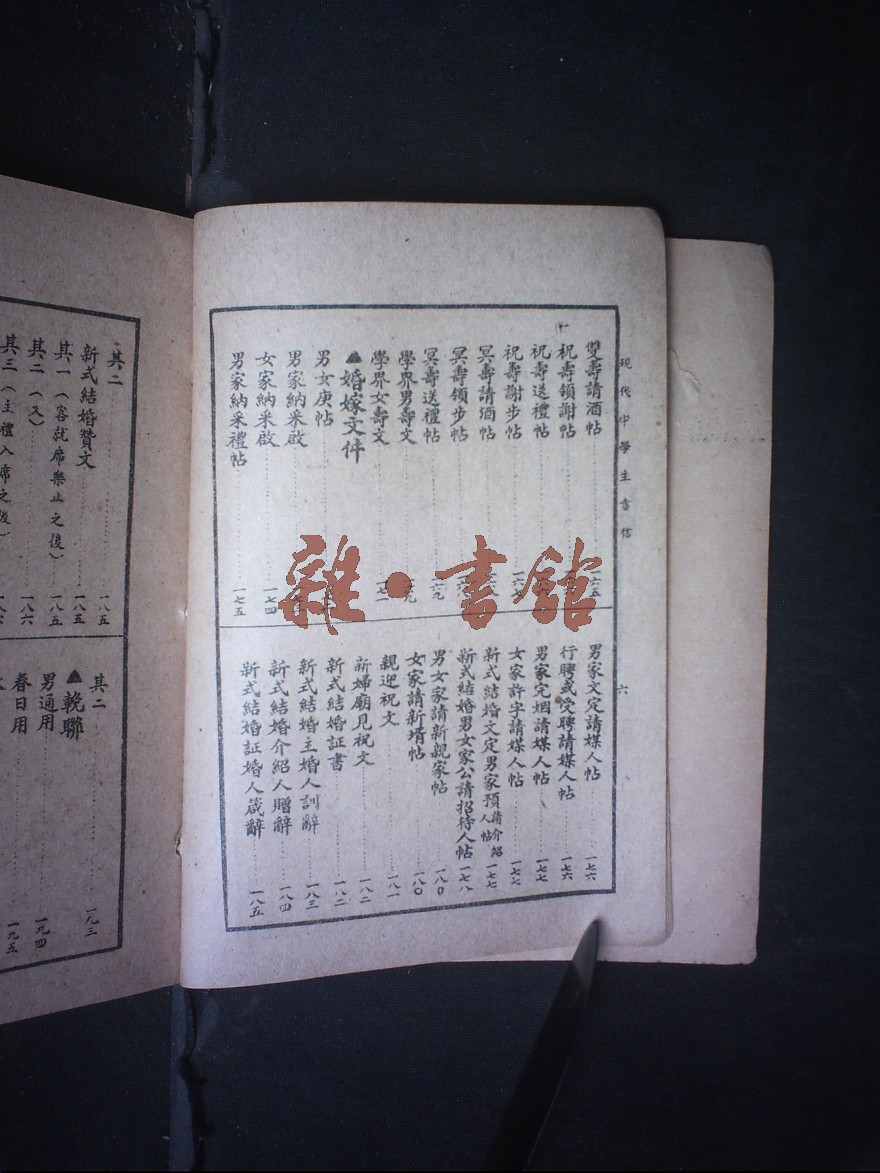 現代中學生書信
六
雙壽請酒帖 一六五
祝壽領謝帖
祝壽送禮帖
祝壽謝步帖 一六七
冥壽請酒帖
冥壽領步帖
冥壽送禮帖 一六九
學界男壽文
學界女壽文 一七一
▲婚嫁文件
男女庚帖
男家納采啟
女家納采啟 一七四
男家納采禮帖 一七五
男家文定請媒人帖 一七六
行聘或受聘請媒人帖 一七六
男家完姻請媒人帖 一七七
女家許字請媒人帖 一七七
新式結婚文定男家預請介紹人帖 一七七
新式結婚男女家公請招待人帖 一七八
男女家請新親家帖 一八〇
女家請新壻帖 一八〇
親迎祝文 一八一
新婦廟見祝文 一八二
新式結婚証書 一八二
新式結婚主婚人訓辭 一八三
新式結婚介紹人贈辭 一八四
新式結婚証婚人箴辭 一八五
其二 一八五
新式結婚贊文 一八五
其一（客就席樂止之後） 一八五
其二（又） 一八六
其三（主禮入席之後） 一八六
其二 一九三
▲輓聯
男通用 一九四
春日用 一九五
雜·書館